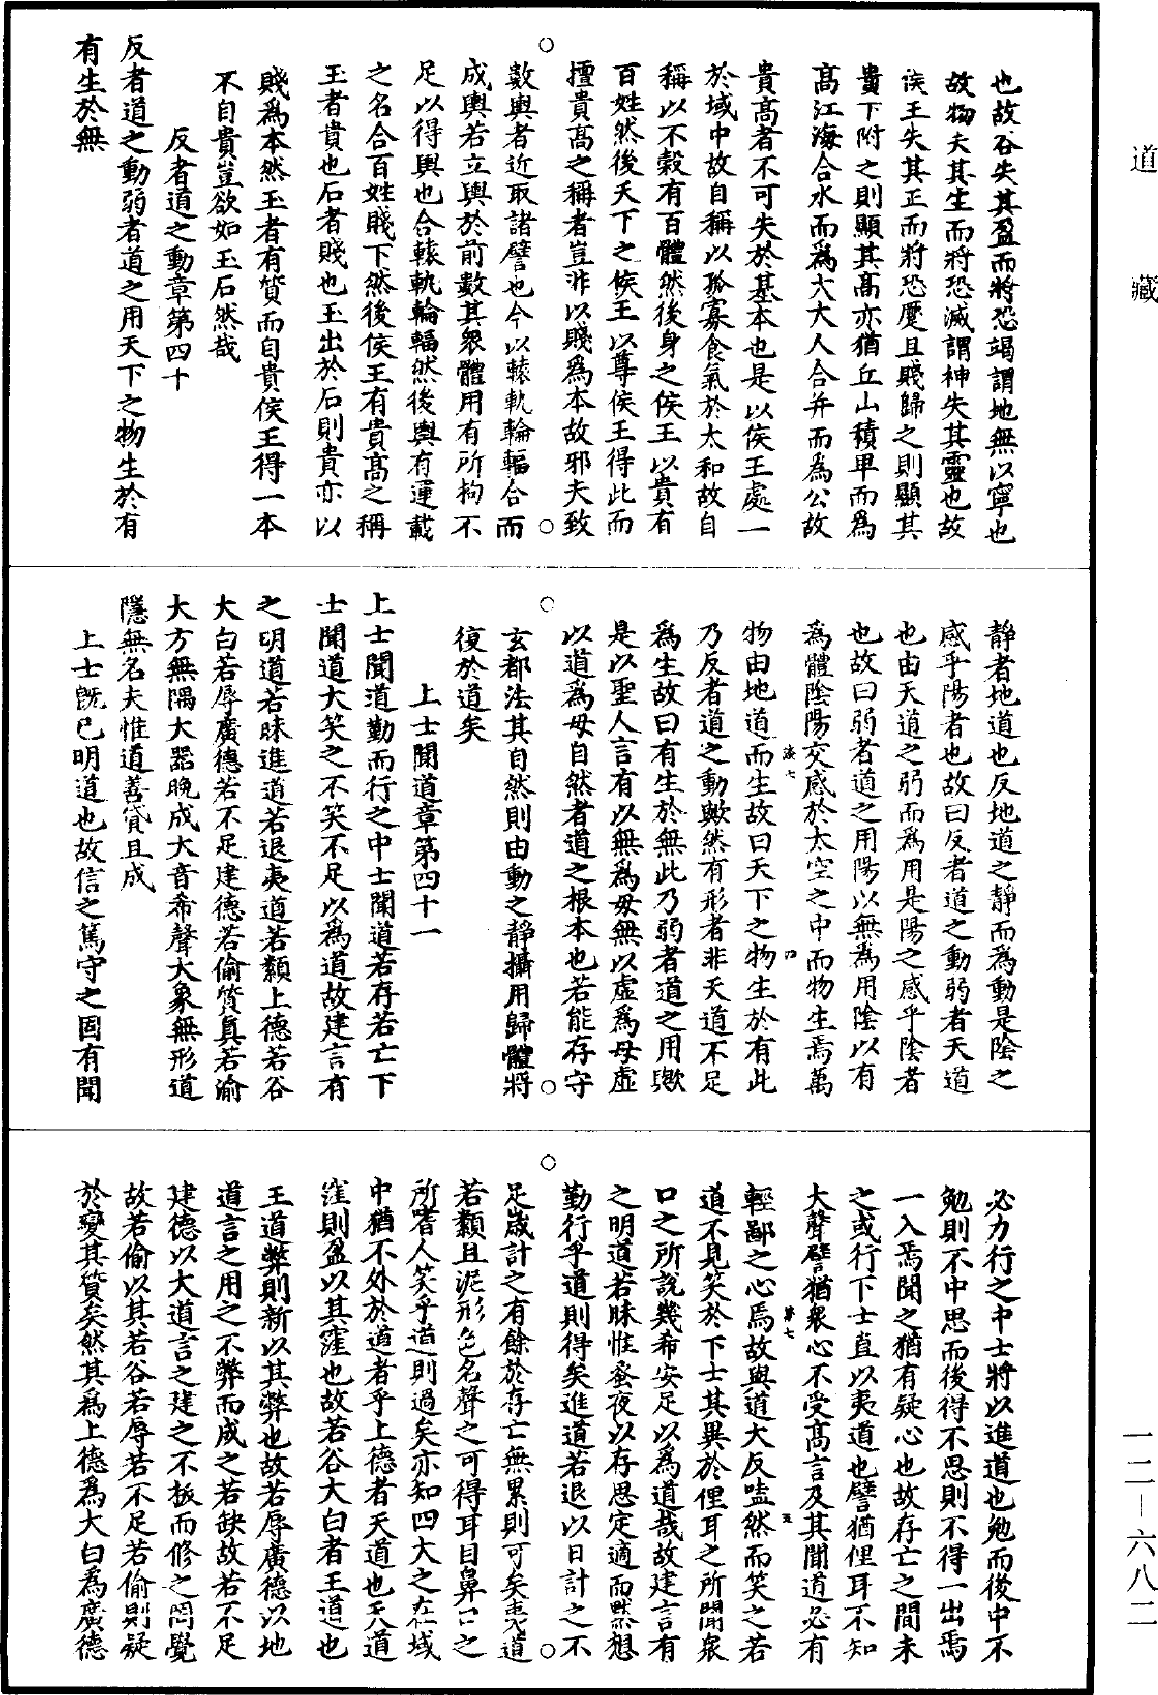 道藏
也故谷失其盈而將恐竭謂地無以寧也
故物夫其生而將恐滅謂神失其靈也故
侯王失其正而將恐蹷且賤歸之則顯其
貴下附之則顯其髙亦猶丘山積卑而爲
髙江海合水而爲大大人合并而爲公故
貴髙者不可失於基本也是以侯王處一
於域中故自稱以孤寡食氣於太和故自
稱以不榖有百體然後身之侯王以貴有
百姓然後天下之侯王以尊侯王得此而
擅貴髙之稱者豈非以賤爲本故邪夫致
數輿者近取諸譬也今以轅軌輪輻合而
成輿若立輿於前數其衆體用有所拘不
足以得輿也合轅軌輪輻然後輿有運載
之名合百姓賤下然後侯王有貴髙之稱
玉者貴也石者賤也玉出於石則貴亦以
賤爲本然玉者有質而自貴侯王得一本
不自貴豈欲如玉石然哉
反者道之動章第四十
反者道之動弱者道之用天下之物生於有
有生於無
静者地道也反地道之静而爲動是陰之
感乎陽者也故曰反者道之動弱者天道
也由天道之弱而爲用是陽之感乎陰者
也故曰弱者道之用陽以無爲用陰以有
爲體陰陽交感於太空之中而物生焉萬
物由地道而生故曰天下之物生於有此
乃反者道之動歟然有形者非天道不足
爲生故曰有生於無此乃弱者道之用歟
是以聖人言有以無爲母無以虛爲母虛
以道爲母自然者道之根本也若能存守
玄都法其自然則由動之静攝用歸體將
復於道矣
上士聞道章第四十一
上士聞道勤而行之中士聞道若存若亡下
士聞道大笑之不笑不足以爲道故建言有
之明道若昧進道若退夷道若纇上德若谷
大白若辱廣德若不足建德若偷質真若渝
大方無隅大器晚成大音希聲大象無形道
隱無名夫惟道善貸且成
上士旣已明道也故信之篤守之固有聞
必力行之中士將以進道也勉而後中不
勉則不中思而後得不思則不得一出焉
一入焉聞之猶有疑心也故存亡之間未
之或行下士直以夷道也譬猶俚耳不知
大聲譬猶衆心不受髙言及其聞道必有
輕鄙之心焉故與道大反嗑然而笑之若
道不見笑於下士其異於俚耳之所聞衆
口之所說幾希安足以爲道哉故建言有
之明道若昧惟蚤夜以存思定適而黙想
勤行乎道則得矣進道若退以日計之不
足歲計之有餘於存亡無累則可矣夷道
若纇且泥形色名聲之可得耳目鼻口之
所嗜人笑乎道則過矣亦知四大之在域
中猶不外於道者乎上德者天道也天道
窪則盈以其窪也故若谷大白者王道也
王道弊則新以其弊也故若辱廣德以地
道言之用之不弊而成之若缺故若不足
建德以大道言之建之不拔而修之罔覺
故若偷以其若谷若辱若不足若偷則疑
於變其質矣然其爲上德爲大白爲廣德
一二—六八二